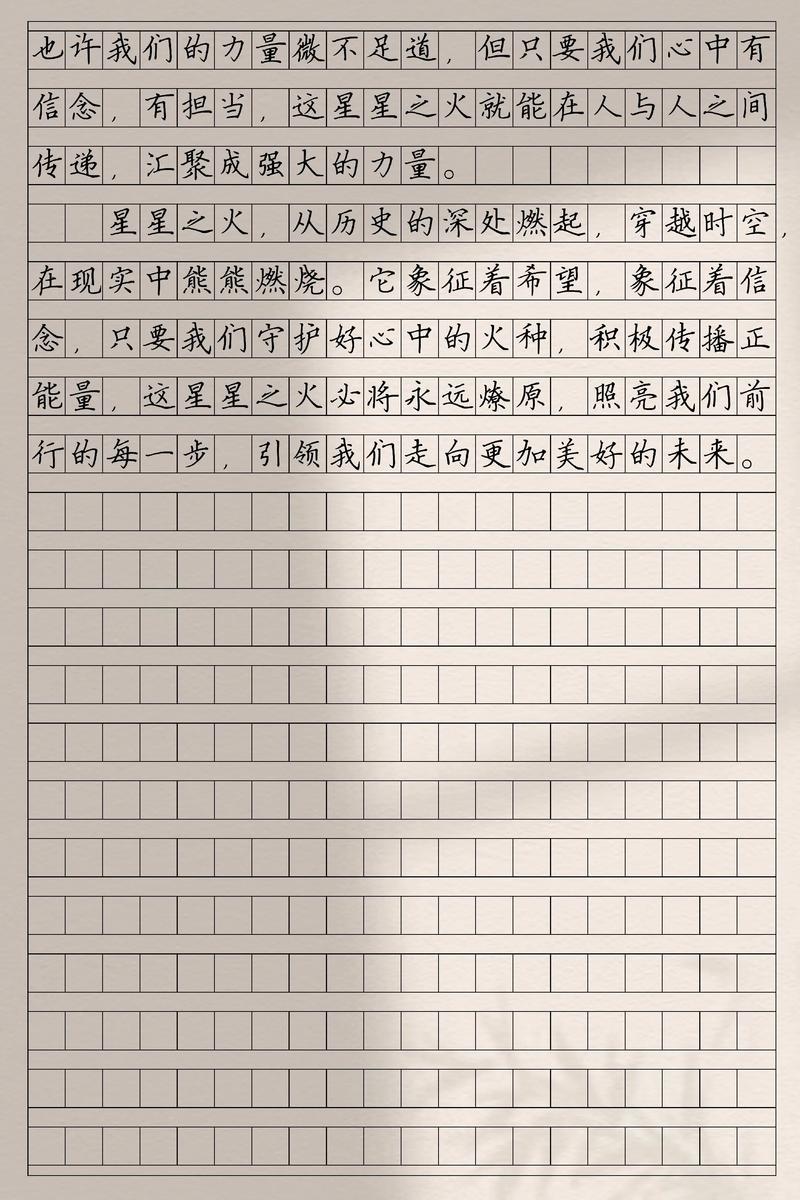 也许我们的力量微不足道，但只要我们心中有
信念，有担当，这星星之火就能在人与人之间
传递，汇聚成强大的力量。
星星之火，从历史的深处燃起，穿越时空，
在现实中熊熊燃烧。它象征着希望，象征着信
念，只要我们守护好心中的火种，积极传播正
能量，这星星之火必将永远燎原，照亮我们前
行的每一步，引领我们走向更加美好的未来。